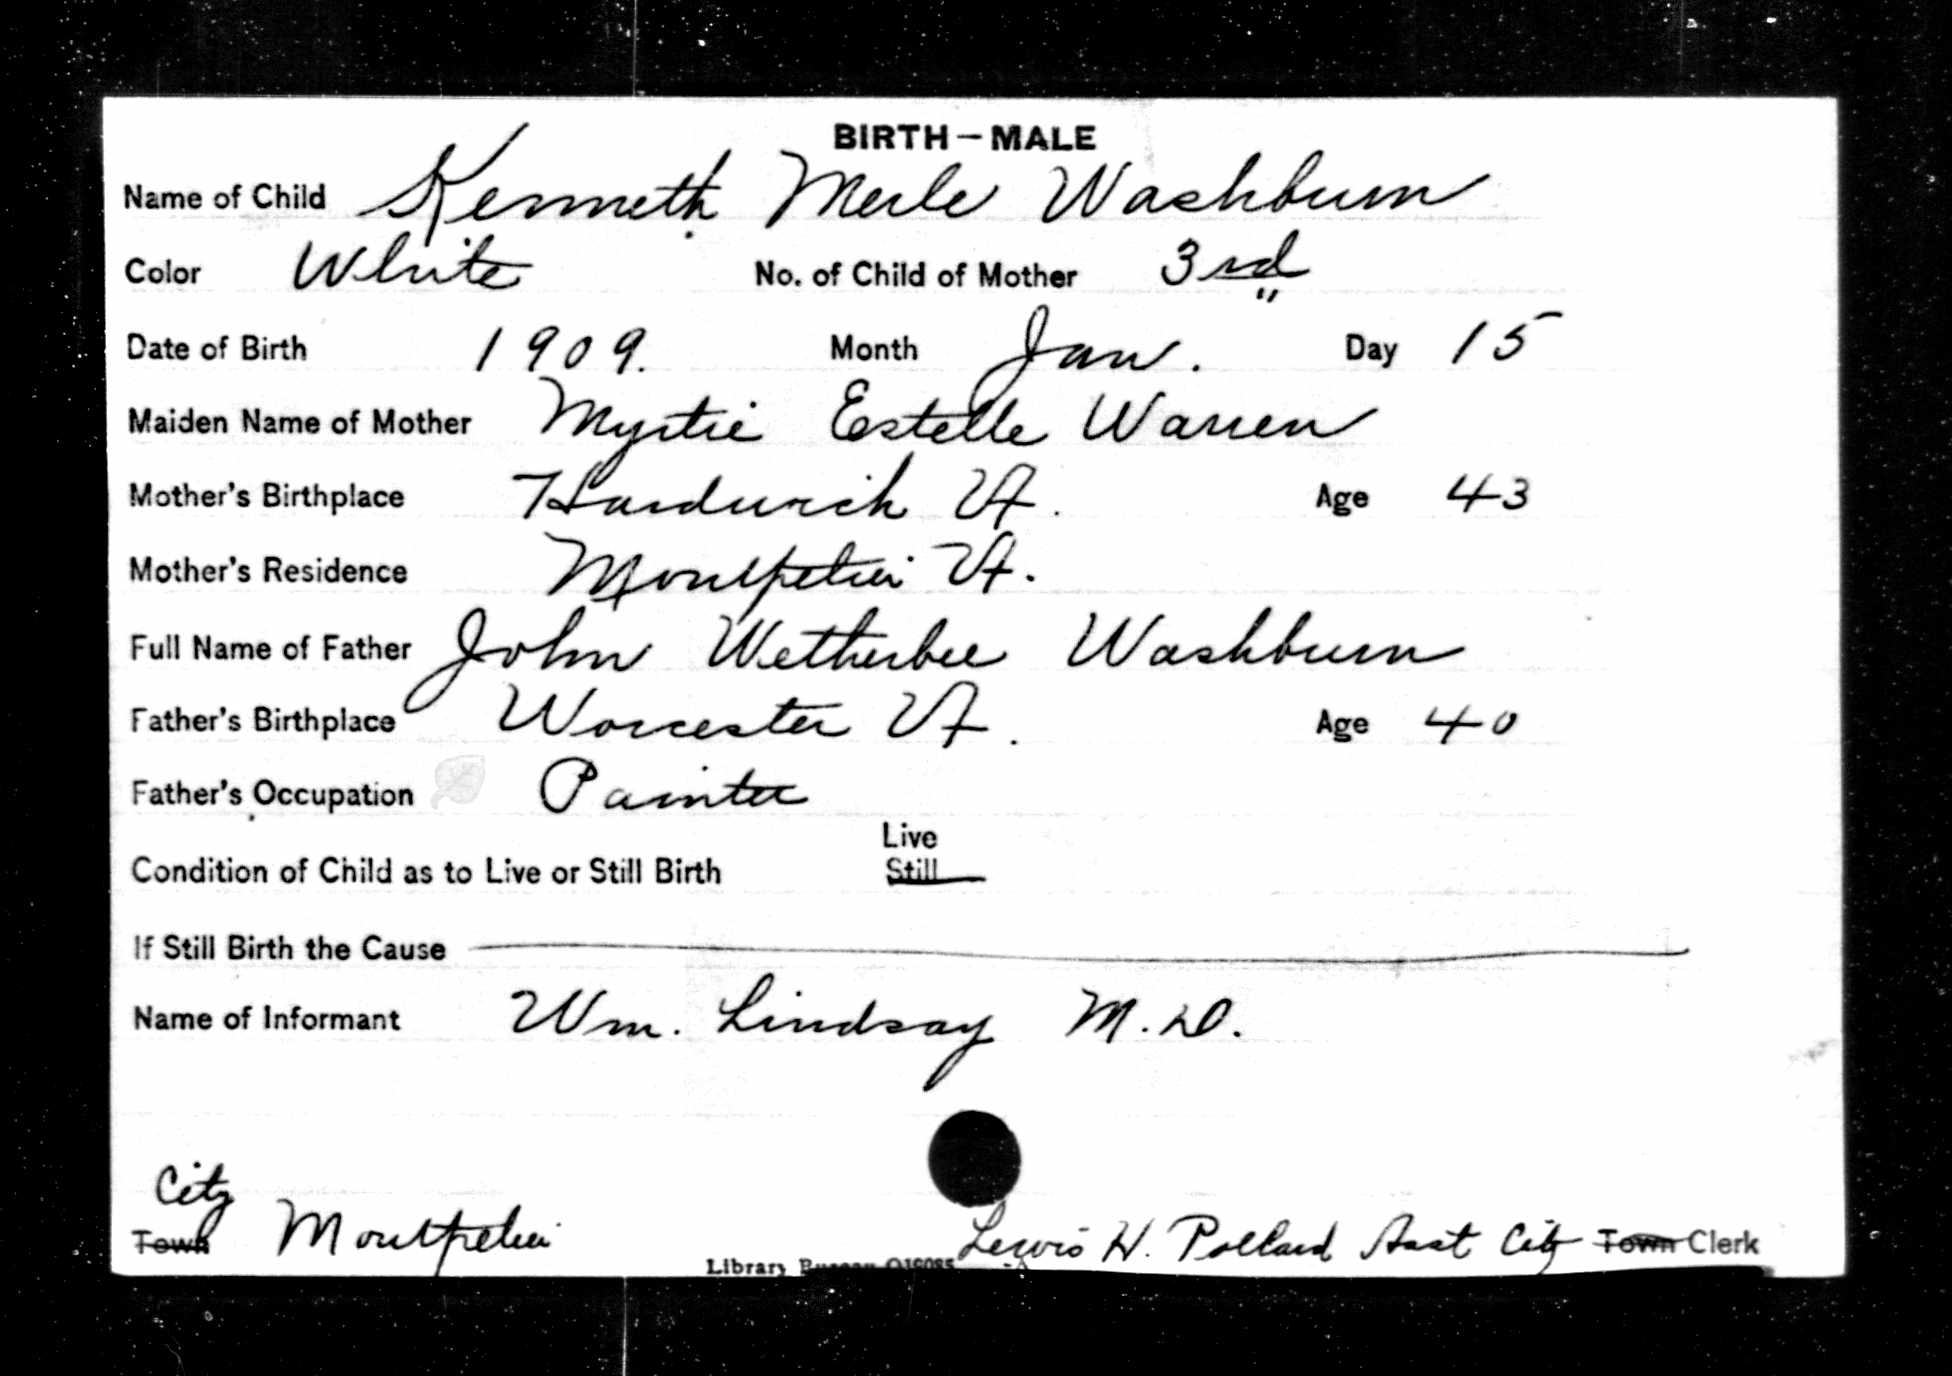 BIRTH — MALE
Name of Child Kenneth Merle Washburn
Color White No. of Child of Mother 3rd
Date of Birth 1909. Month Jan. Day 15
Maiden Name of Mother Myrtie Estelle Warren
Mother's Birthplace Hardwick Vt. Age 43
Mother's Residence Montpelier Vt.
Full Name of Father John Wetherbee Washburn
Father's Birthplace Worcester Vt. Age 40
Father's Occupation Painter
Live
Condition of Child as to Live or Still Birth Still
If Still Birth the Cause
Name of Informant Wm. Lindsay M.D.
City
Town Montpelier Lewis H. Pollard Asst City Town Clerk
Library